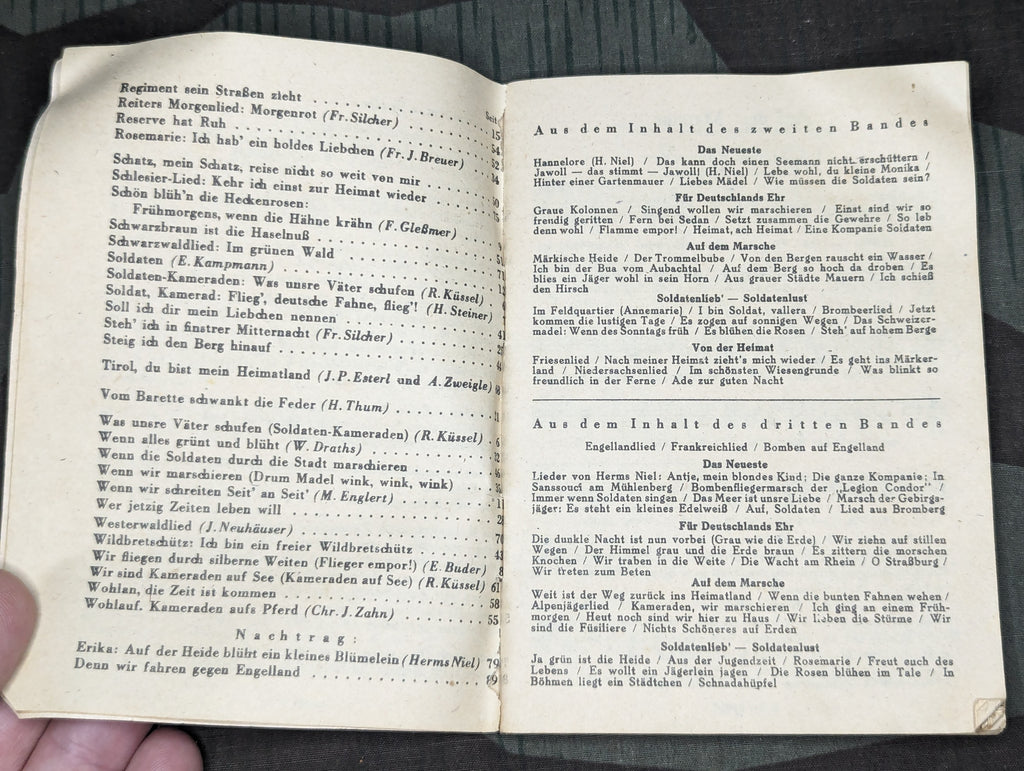 Seite
Regiment sein Straßen zieht . . . . . . . . . . . . . 15
Reiters Morgenlied: Morgenrot (Fr. Silcher) . . . . . 54
Reserve hat Ruh . . . . . . . . . . . . . . . . 52
Rosemarie: Ich hab' ein holdes Liebchen (Fr. J. Breuer) 34
Schatz, mein Schatz, reise nicht so weit von mir . . . .
Schlesier-Lied: Kehr ich einst zur Heimat wieder . . . .
Schön blüh'n die Heckenrosen:
Frühmorgens, wenn die Hähne krähn (F. Gleßmer) .
Schwarzbraun ist die Haselnuß . . . . . . . . . . .
Schwarzwaldlied: Im grünen Wald . . . . . . . . . .
Soldaten (E. Kampmann) . . . . . . . . . . . . .
Soldaten-Kameraden: Was unsre Väter schufen (R. Küssel) .
Soldat, Kamerad: Flieg', deutsche Fahne, flieg'! (H. Steiner)
Soll ich dir mein Liebchen nennen . . . . . . . . . 41
Steh' ich in finstrer Mitternacht (Fr. Silcher) . . . . .
Steig ich den Berg hinauf . . . . . . . . . . . . .
Tirol, du bist mein Heimatland (J. P. Esterl und A. Zweigle)
Vom Barette schwankt die Feder (H. Thum) . . . . . . .
Was unsre Väter schufen (Soldaten-Kameraden) (R. Küssel) . 6
Wenn alles grünt und blüht (W. Draths) . . . . . . .
Wenn die Soldaten durch die Stadt marschieren . . . .
Wenn wir marschieren (Drum Madel wink, wink, wink) . .
Wenn wir schreiten Seit' an Seit' (M. Englert) . . . .
Wer jetzig Zeiten leben will . . . . . . . . . . . .
Westerwaldlied (J. Neuhäuser) . . . . . . . . . . . 70
Wildbretschütz: Ich bin ein freier Wildbretschütz . . . . 43
Wir fliegen durch silberne Weiten (Flieger empor!) (E. Buder) 8
Wir sind Kameraden auf See (Kameraden auf See) (R. Küssel) 61
Wohlan, die Zeit ist kommen . . . . . . . . . . . . 58
Wohlauf. Kameraden aufs Pferd (Chr. J. Zahn) . . . . . 55
Nachtrag:
Erika: Auf der Heide blüht ein kleines Blümelein (Herms Niel) 79
Denn wir fahren gegen Engelland . . . . . . . . . . 89
Aus dem Inhalt des zweiten Bandes
Das Neueste
Hannelore (H. Niel) / Das kann doch einen Seemann nicht erschüttern /
Jawoll — das stimmt — Jawoll! (H. Niel) / Lebe wohl, du kleine Monika /
Hinter einer Gartenmauer / Liebes Mädel / Wie müssen die Soldaten sein?
Für Deutschlands Ehr
Graue Kolonnen / Singend wollen wir marschieren / Einst sind wir so
freudig geritten / Fern bei Sedan / Setzt zusammen die Gewehre / So leb
denn wohl / Flamme empor! / Heimat, ach Heimat / Eine Kompanie Soldaten
Auf dem Marsche
Märkische Heide / Der Trommelbube / Von den Bergen rauscht ein Wasser /
Ich bin der Bua vom Aubachtal / Auf dem Berg so hoch da droben / Es
blies ein Jäger wohl in sein Horn / Aus grauer Städte Mauern / Ich schieß
den Hirsch
Soldatenlieb' — Soldatenlust
Im Feldquartier (Annemarie) / I bin Soldat, vallera / Brombeerlied / Jetzt
kommen die lustigen Tage / Es zogen auf sonnigen Wegen / Das Schweizer-
madel: Wenn des Sonntags früh / Es blühen die Rosen / Steh' auf hohem Berge
Von der Heimat
Friesenlied / Nach meiner Heimat zieht's mich wieder / Es geht ins Märker-
land / Niedersachsenlied / Im schönsten Wiesengrunde / Was blinkt so
freundlich in der Ferne / Ade zur guten Nacht
Aus dem Inhalt des dritten Bandes
Engellandlied / Frankreichlied / Bomben auf Engelland
Das Neueste
Lieder von Herms Niel: Antje, mein blondes Kind; Die ganze Kompanie; In
Sanssouci am Mühlenberg / Bombenfliegermarsch der „Legion Condor" /
Immer wenn Soldaten singen / Das Meer ist unsre Liebe / Marsch der Gebirgs-
jäger: Es steht ein kleines Edelweiß / Auf, Soldaten / Lied aus Bromberg
Für Deutschlands Ehr
Die dunkle Nacht ist nun vorbei (Grau wie die Erde) / Wir ziehn auf stillen
Wegen / Der Himmel grau und die Erde braun / Es zittern die morschen
Knochen / Wir traben in die Weite / Die Wacht am Rhein / O Straßburg /
Wir treten zum Beten
Auf dem Marsche
Weit ist der Weg zurück ins Heimatland / Wenn die bunten Fahnen wehen /
Alpenjägerlied / Kameraden, wir marschieren / Ich ging an einem Früh-
morgen / Heut noch sind wir hier zu Haus / Wir lieben die Stürme / Wir
sind die Füsiliere / Nichts Schöneres auf Erden
Soldatenlieb' — Soldatenlust
Ja grün ist die Heide / Aus der Jugendzeit / Rosemarie / Freut euch des
Lebens / Es wollt ein Jägerlein jagen / Die Rosen blühen im Tale / In
Böhmen liegt ein Städtchen / Schnadahüpfel